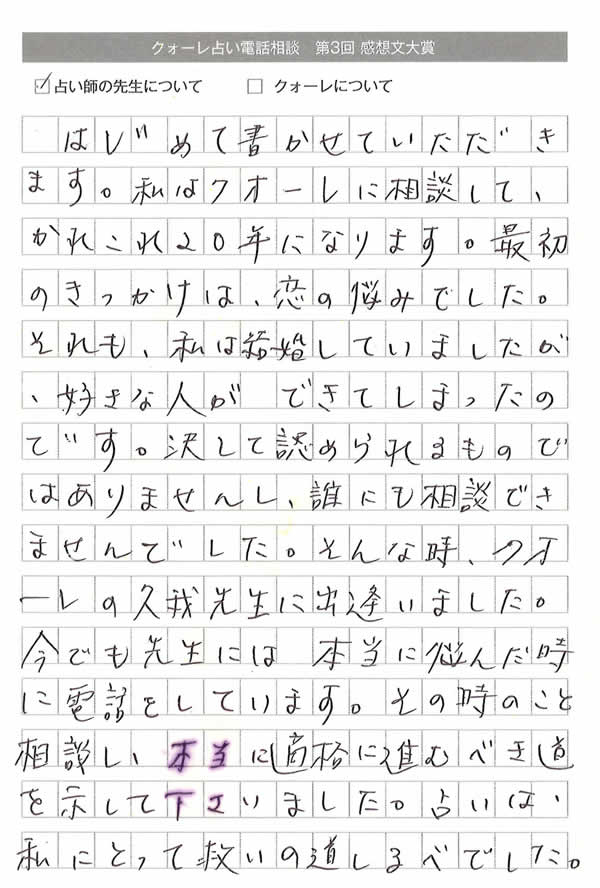 クォーレ占い電話相談 第3回 感想文大賞
占い師の先生について クォーレについて
はじめて書かせていただき
ます。私はクオーレに相談して、
かれこれ20年になります。最初
のきっかけは、恋の悩みでした。
それも、私は結婚していましたが
、好きな人が できてしまったの
です。決して認められるもので
はありませんし、誰にも相談でき
ませんでした。そんな時、クオ
ーレの久我先生に出逢いました。
今でも先生には 本当に悩んだ時
に電話をしています。その時のこと
相談し、本当に適格に進むべき道
を示して下さいました。占いは、
私にとって救いの道しるべでした。